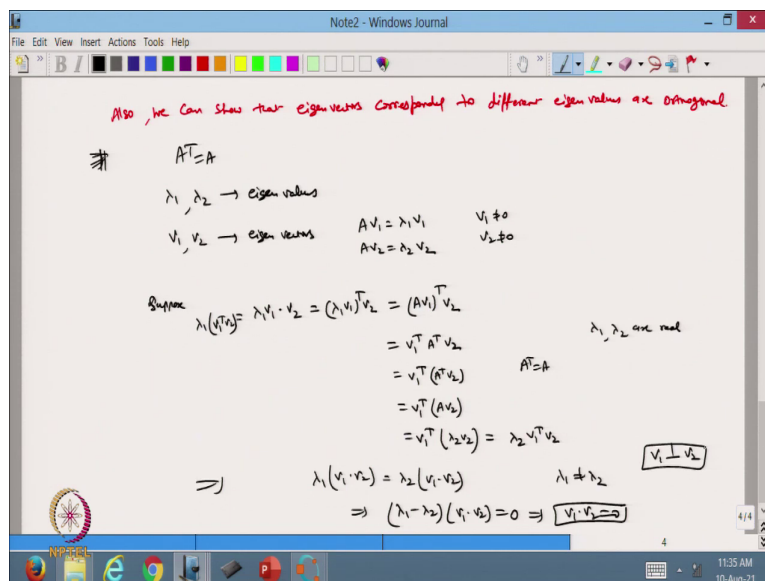 Note2 - Windows Journal
File Edit View Insert Actions Tools Help
Also, we can show that eigenvectors correspondy to different eigenvalues are orthogonal.
# Aᵀ=A
λ₁, λ₂ → eigenvalues
v₁, v₂ → eigen vectors Av₁ = λ₁v₁ v₁≠0
Av₂ = λ₂v₂ v₂≠0
Suppose λ₁(v₁ᵀv₂) = λ₁v₁·v₂ = (λ₁v₁)ᵀv₂ = (Av₁)ᵀv₂
= v₁ᵀAᵀv₂ λ₁, λ₂ are real
= v₁ᵀ(Aᵀv₂) Aᵀ=A
= v₁ᵀ(Av₂)
= v₁ᵀ(λ₂v₂) = λ₂v₁ᵀv₂
v₁ ⊥ v₂
⇒ λ₁(v₁·v₂) = λ₂(v₁·v₂) λ₁≠λ₂
⇒ (λ₁-λ₂)(v₁·v₂)=0 ⇒ v₁·v₂=0
4/4
4
NPTEL
11:35 AM
10-Aug-21